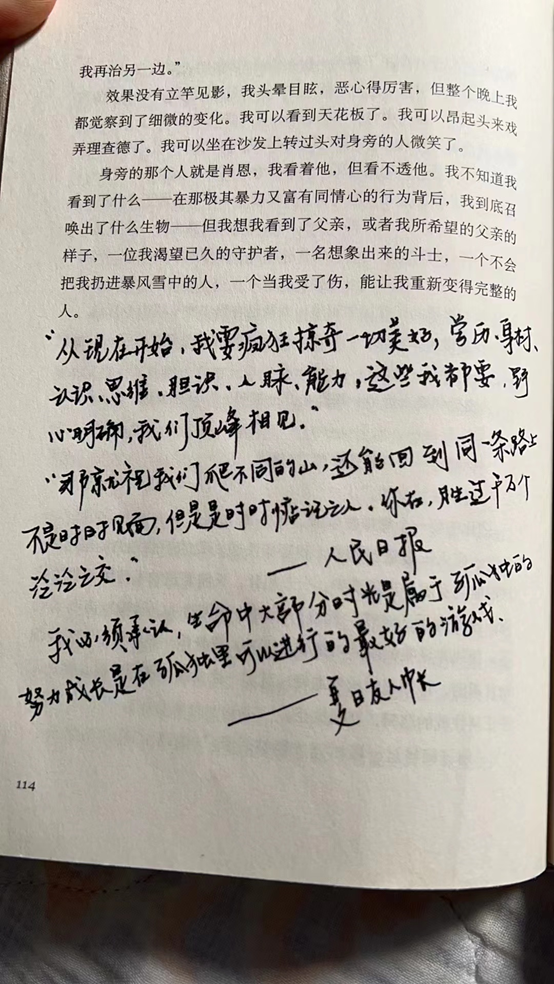 我再治另一边。”
效果没有立竿见影，我头晕目眩，恶心得厉害，但整个晚上我
都觉察到了细微的变化。我可以看到天花板了。我可以昂起头来戏
弄理查德了。我可以坐在沙发上转过头对身旁的人微笑了。
身旁的那个人就是肖恩，我看着他，但看不透他。我不知道我
看到了什么——在那极其暴力又富有同情心的行为背后，我到底召
唤出了什么生物——但我想我看到了父亲，或者我所希望的父亲的
样子，一位我渴望已久的守护者，一名想象出来的斗士，一个不会
把我扔进暴风雪中的人，一个当我受了伤，能让我重新变得完整的
人。
“从现在开始，我要疯狂掠夺一切美好，学历、身材、
认识、思维、胆识、人脉、能力，这些我都要，野
心明确，我们顶峰相见。”
“那就祝我们爬不同的山，还能回到同一条路上
不是时时见面，但是是时时惦记之人。你在，胜过千万个
泛泛之交。”
——人民日报
我必须承认，生命中大部分时光是属于孤独的
努力成长是在孤独里可以进行的最好的游戏、
——夏目友人帐
114